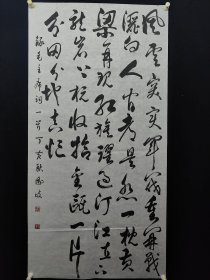 風雲突变軍阀重開戰
灑向人间都是怨一枕黄
粱再现红旗躍過汀江直下
龍岩上杭收拾金瓯一片
分田分地真忙
錄毛主席词一首丁亥秋